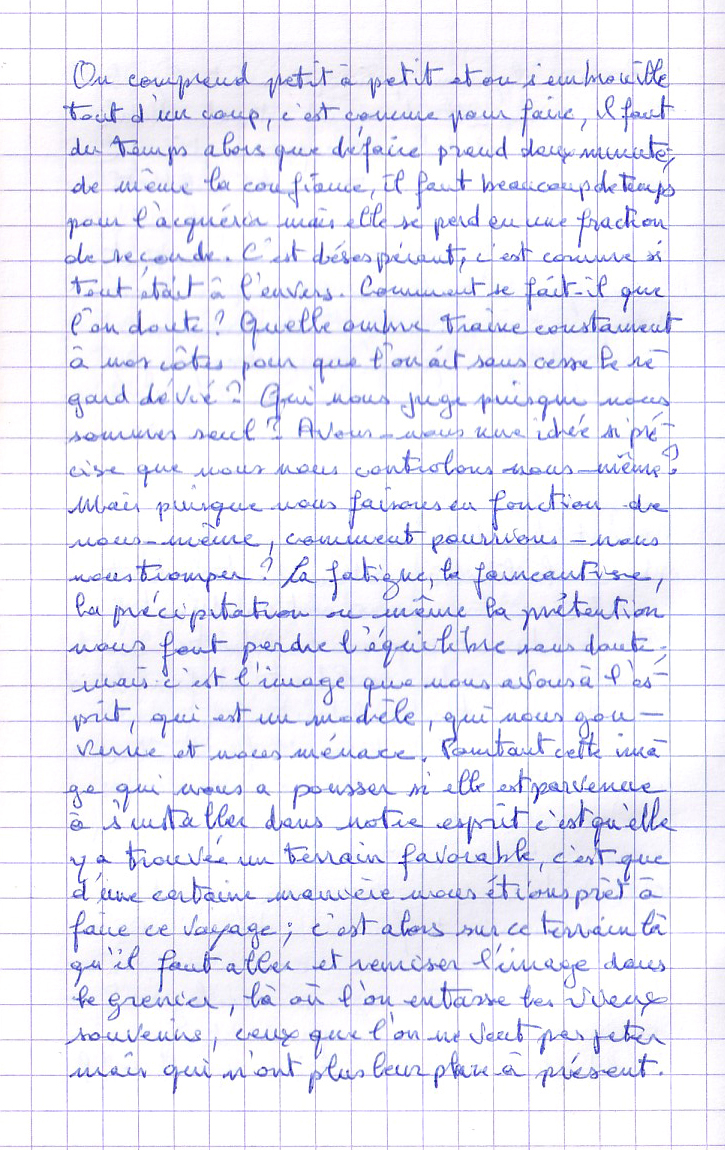 On comprend petit à petit et on s'embrouille
tout d'un coup, c'est comme pour faire, il faut
du temps alors que défaire prend deux minutes,
de même la confiance, il faut beaucoup de temps
pour l'acquérir mais elle se perd en une fraction
de seconde. C'est désespérant, c'est comme si
tout était à l'envers. Comment se fait-il que
l'on doute? Quelle ombre traîne constament
à nos côtés pour que l'on ait sans cesse le re-
gard dévié? Qui nous juge puisque nous
sommes seul? Avons-nous une idée si pré-
cise que nous nous controlons nous-même?
Mais puisque nous faisons en fonction de
nous-même, comment pourrions-nous
nous tromper? La fatigue, la faineantise,
la précipitation ou même la prétention
nous font perdre l'équilibre sans doute,
mais c'est l'image que nous avons à l'es-
prit, qui est un modèle, qui nous gou-
verne et nous ménace. Pourtant cette ima-
ge qui nous a pousser si elle est parvenue
à s'installer dans notre esprit c'est qu'elle
y a trouvée un terrain favorable, c'est que
d'une certaine manière nous étions prêt à
faire ce voyage; c'est alors sur ce terrain là
qu'il faut aller et remiser l'image dans
le grenier, là où l'on entasse les vieux
souvenirs, ceux que l'on ne veut pas jeter
mais qui n'ont plus leur place à présent.